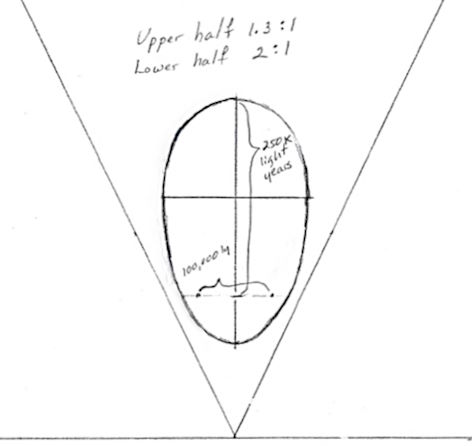 Upper half 1.3:1
Lower half 2:1
250K
light
years
100,000 ly